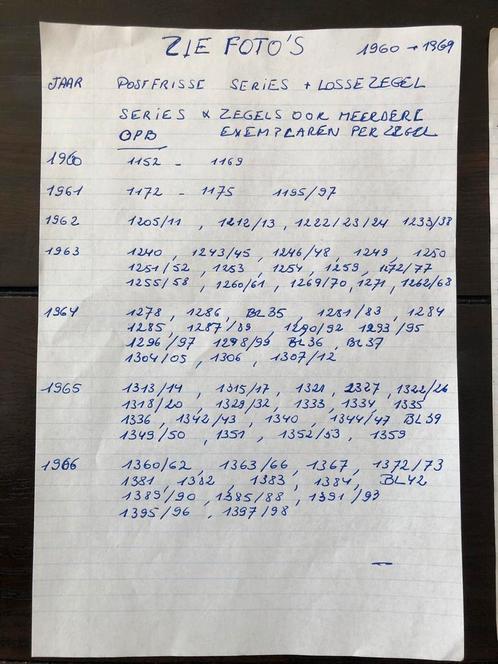 ZIE FOTO'S 1960 → 1969
JAAR POSTFRISSE SERIES + LOSSE ZEGEL
SERIES X ZEGELS OOK MEERDERE
OPB EXEMPLAREN PER ZEGEL
1960 1152 - 1169
1961 1172 - 1175 1195/97
1962 1205/11 , 1212/13 , 1222/23/24 1233/38
1963 1240 , 1243/45 , 1246/48 , 1249 , 1250
1251/52 , 1253 , 1254 , 1259 , 1272/77
1255/58 , 1260/61 , 1269/70 , 1271 , 1262/68
1964 1278 , 1286 , BL35 , 1281/83 , 1284
1285 , 1287/89 , 1290/92 1293/95
1296/97 1298/99 BL36 , BL37
1304/05 , 1306 , 1307/12
1965 1313/14 , 1315/17 , 1321 , 1327 , 1322/26
1318/20 , 1328/32 , 1333 , 1334 , 1335
1336 , 1342/43 , 1340 , 1344/47 BL39
1349/50 , 1351 , 1352/53 , 1359
1966 1360/62 , 1363/66 , 1367 , 1372/73
1381 , 1382 , 1383 , 1384 , BL42
1389/90 , 1385/88 , 1391/93
1395/96 , 1397/98